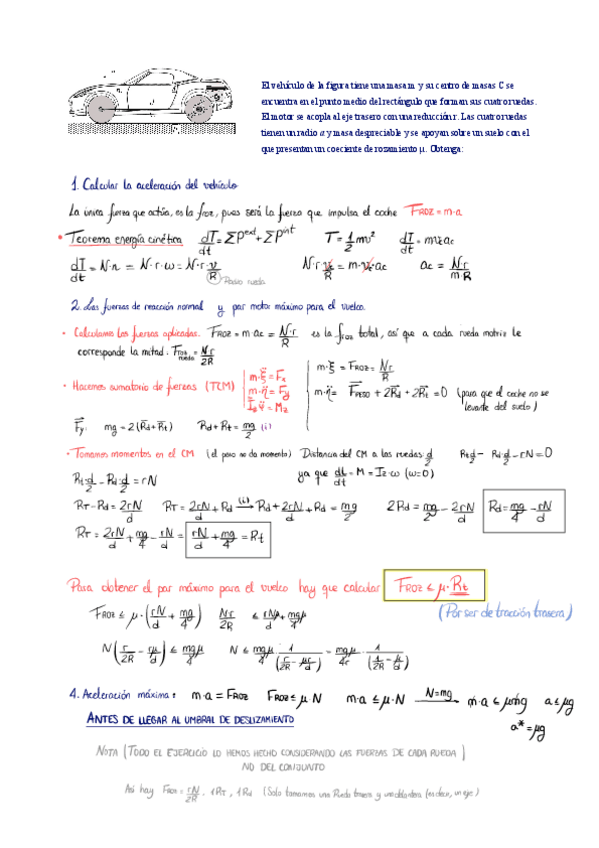 El vehículo de la figura tiene una masa m y su centro de masas C se
encuentra en el punto medio del rectángulo que forman sus cuatro ruedas.
El motor se acopla al eje trasero con una reducción r. Las cuatro ruedas
tienen un radio R y masa despreciable y se apoyan sobre un suelo con el
que presentan un coeciente de rozamiento μ. Obtenga:
1. Calcular la aceleración del vehículo
La única fuerza que actúa, es la froz, pues será la fuerza que impulsa el coche FROZ = m·a
* Teorema energía cinética dT/dt = ΣP^ext + ΣP^int T = 1/2 mv² dT/dt = m v_c a_c
dT/dt = N·n = N·r·ω = N·r·v/R Radio rueda N·r·v_c/R = m·v_c·a_c a_c = Nr/mR
2. Las fuerzas de reacción normal y par motor máximo para el vuelco.
• Calculamos las fuerzas aplicadas. FROZ = m·ac = N·r/R es la froz total, así que a cada rueda motriz le
corresponde la mitad. Froz rueda = Nr/2R
• Hacemos sumatorio de fuerzas (TCM) m·ξ̈ = Fx m·η̈ = Fy Iz φ̈ = Mz m·ξ̈ = FROZ = Nr/R
m·η̈ = FPESO + 2Rd + 2Rt = 0 (para que el coche no se
levante del suelo)
Fy: mg = 2(Rd+Rt) Rd+Rt = mg/2 (i)
• Tomamos momentos en el CM (el peso no da momento) Distancia del CM a las ruedas: d/2 Rt·d/2 − Rd·d/2 − rN = 0
Rt·d/2 − Rd·d/2 = rN ya que dL/dt = M = Iz·ω (ω=0)
RT − Rd = 2rN/d RT = 2rN/d + Rd (i)→ Rd + 2rN/d + Rd = mg/2 2Rd = mg/2 − 2rN/d Rd = mg/4 − rN/d
RT = 2rN/d + mg/4 − rN/d = rN/d + mg/4 = Rt
Para obtener el par máximo para el vuelco hay que calcular FROZ ≤ μ·Rt
(Por ser de tracción trasera)
FROZ ≤ μ·(rN/d + mg/4) Nr/2R ≤ rNμ/d + mgμ/4
N(r/2R − rμ/d) ≤ mgμ/4 N ≤ mgμ/4 · 1/(r/2R − μr/d) = mgμ/4r · 1/(1/2R − μ/d)
4. Aceleración máxima: m·a = FROZ FROZ ≤ μ N m·a ≤ μ·N N=mg→ m·a ≤ μmg a ≤ μg
ANTES DE LLEGAR AL UMBRAL DE DESLIZAMIENTO a* = μg
NOTA (TODO EL EJERCICIO LO HEMOS HECHO CONSIDERANDO LAS FUERZAS DE CADA RUEDA)
NO DEL CONJUNTO
Así hay FROZ = rN/2R, 1RT, 1Rd (Solo tomamos una Rueda trasera y una delantera (es decir, un eje)